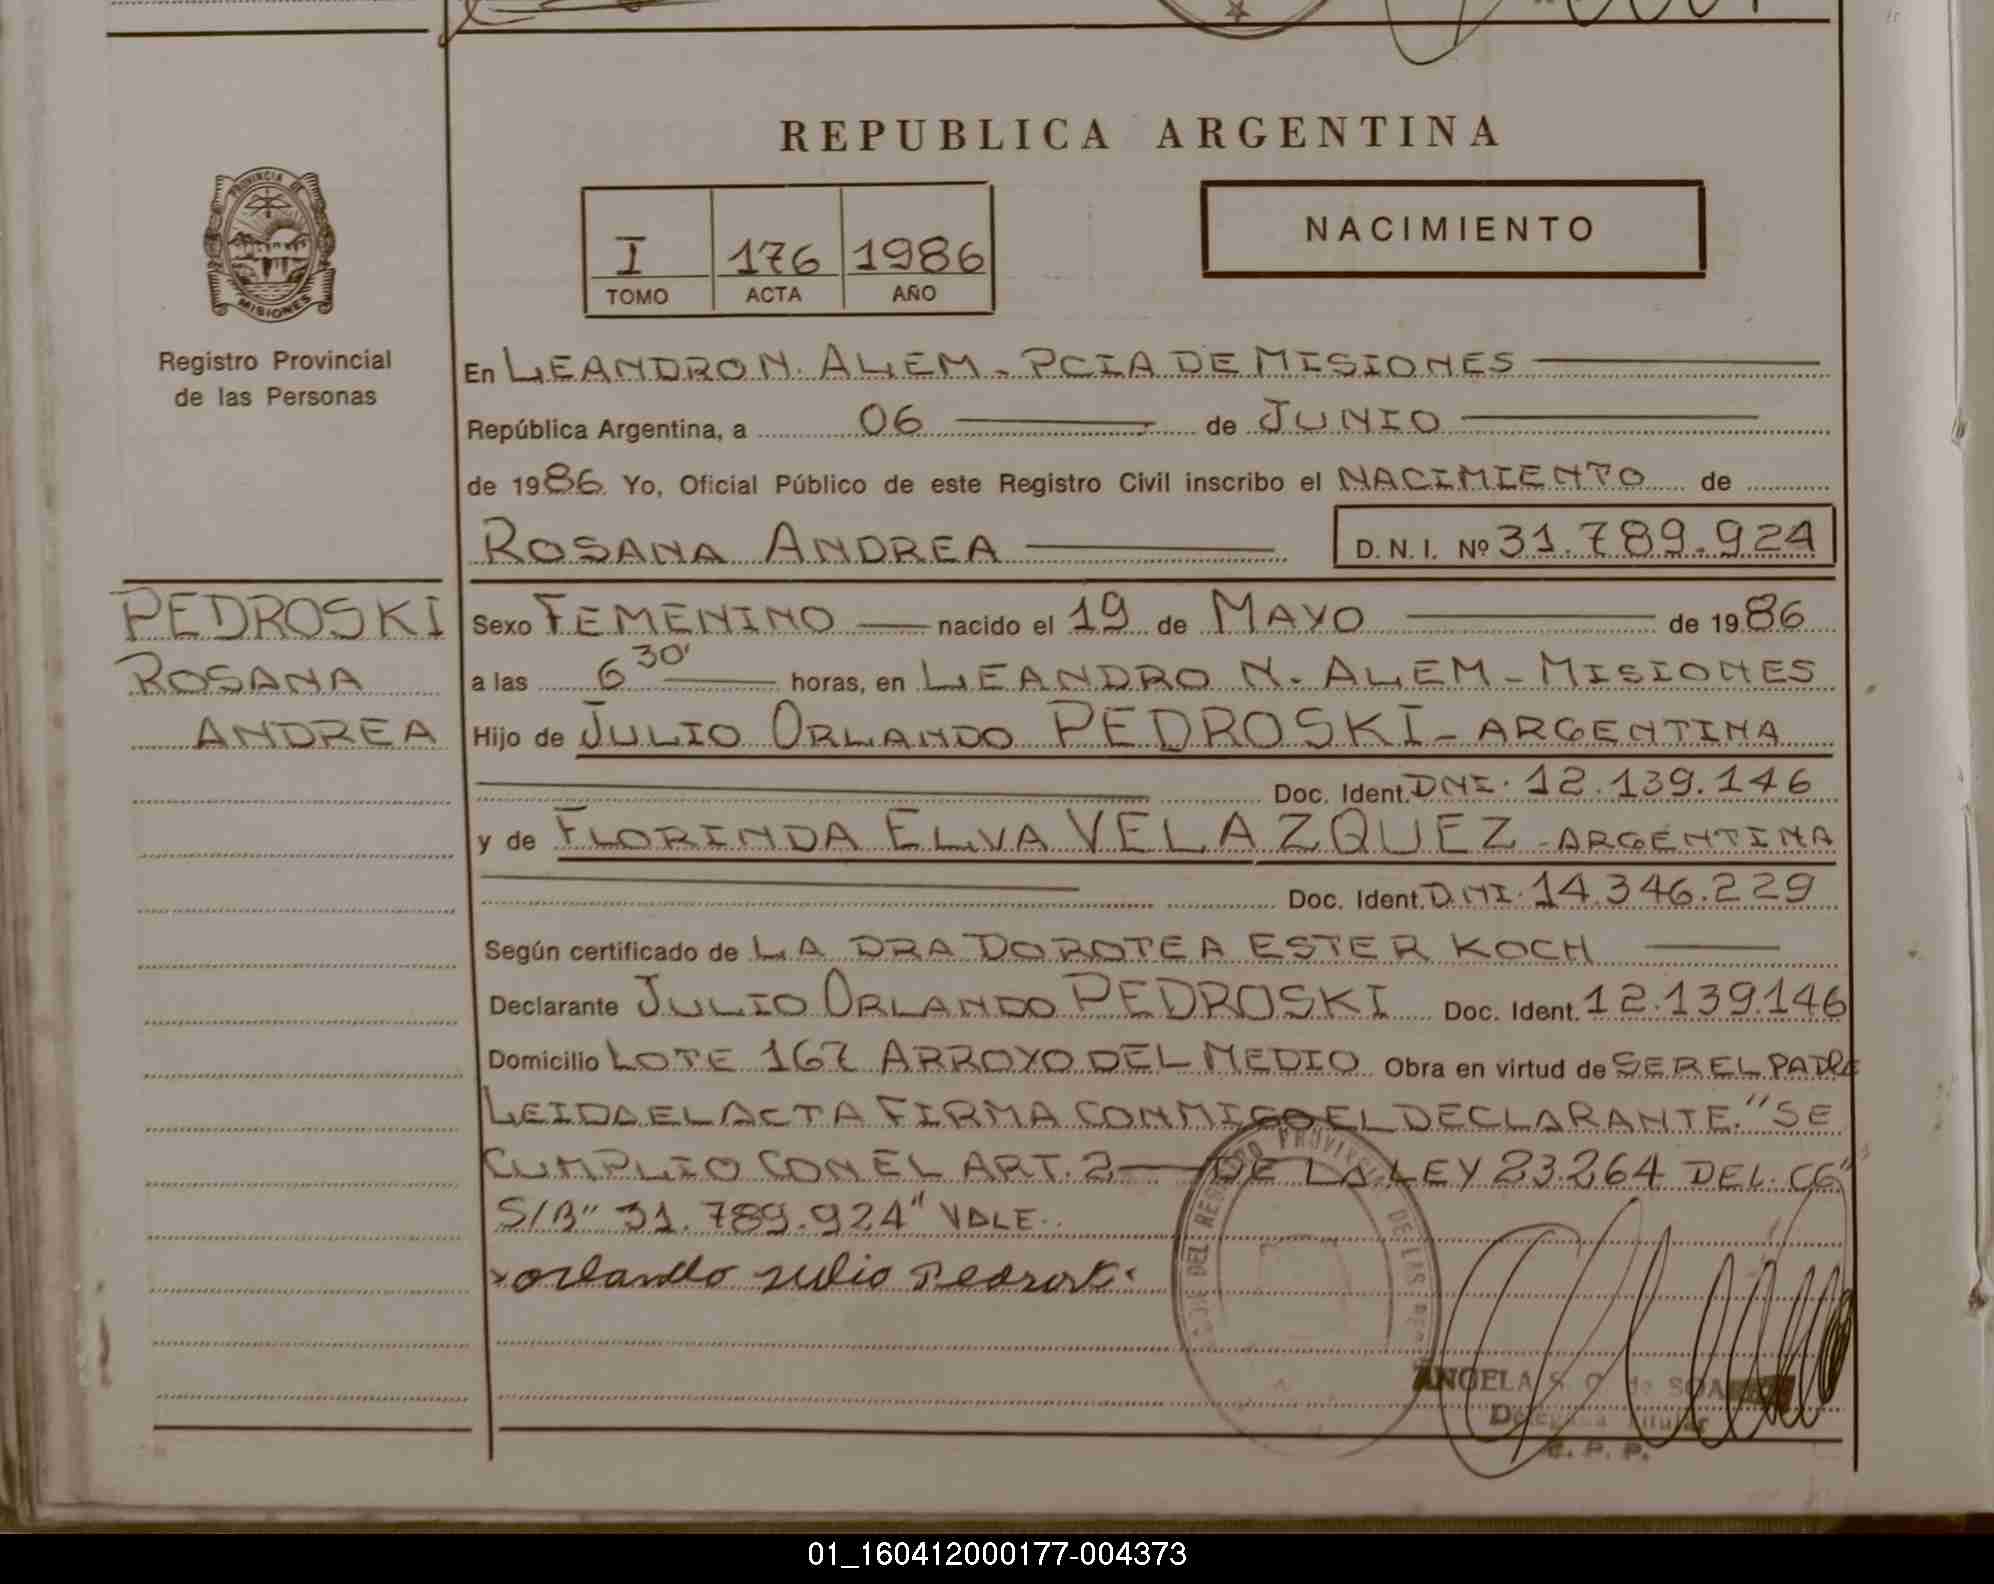 REPUBLICA ARGENTINA
NACIMIENTO
I 176 1986
TOMO ACTA AÑO
PROVINCIA DE
MISIONES
Registro Provincial
de las Personas
En LEANDRO N. ALEM - PCIA DE MISIONES
República Argentina, a 06 de JUNIO
de 1986 Yo, Oficial Público de este Registro Civil inscribo el NACIMIENTO de
ROSANA ANDREA D. N. I. Nº 31.789.924
PEDROSKI
ROSANA
ANDREA
Sexo FEMENINO nacido el 19 de MAYO de 1986
a las 6 30' horas, en LEANDRO N. ALEM - MISIONES
Hijo de JULIO ORLANDO PEDROSKI - ARGENTINA
Doc. Ident. DNI. 12.139.146
y de FLORINDA ELVA VELAZQUEZ - ARGENTINA
Doc. Ident. DNI. 14.346.229
Según certificado de LA DRA DOROTEA ESTER KOCH
Declarante JULIO ORLANDO PEDROSKI Doc. Ident. 12.139.146
Domicilio LOTE 167 ARROYO DEL MEDIO Obra en virtud de SER EL PADRE
LEIDA EL ACTA FIRMA CONMIGO EL DECLARANTE. "SE
CUMPLIO CON EL ART. 2 — DE LA LEY 23.264 DEL. CC"
S/B" 31.789.924" VALE.
orlando julio Pedroski
DEL REGISTRO PROVINCIAL DE LAS
ANGELA S. de
Delegada Titular
R. P. P.
01_160412000177-004373